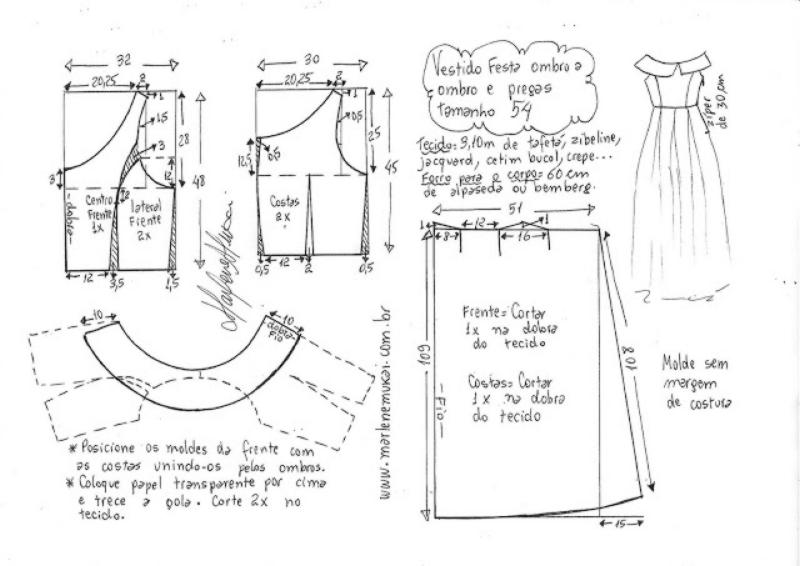 32
20,25
2
1
1,5
3
28
48
12
3
2
dobra
Centro
Frente
1x
lateral
Frente
2x
12
3,5
1,5
30
20,25
2
1
0,5
25
45
12,5
0,5
Costas
2x
0,5
12
2
0,5
Vestido Festa ombro a
ombro e pregas
tamanho 54
Tecido= 3,10m de tafetá, zibeline,
jacquard, cetim bucol, crepe...
Forro para o corpo= 60cm
de alpaseda ou bemberg.
zíper
de 30cm
51
1
8
12
16
1
109
108
Frente= Cortar
1x na dobra
do tecido
Costas= Cortar
1x na dobra
do tecido
Fio
15
Molde sem
margem
de costura
10
10
dobra
Fio
* Posicione os moldes da frente com
as costas unindo-os pelos ombros.
* Coloque papel transparente por cima
e trece a gola. Corte 2x no
tecido.
www.marlenemukai.com.br